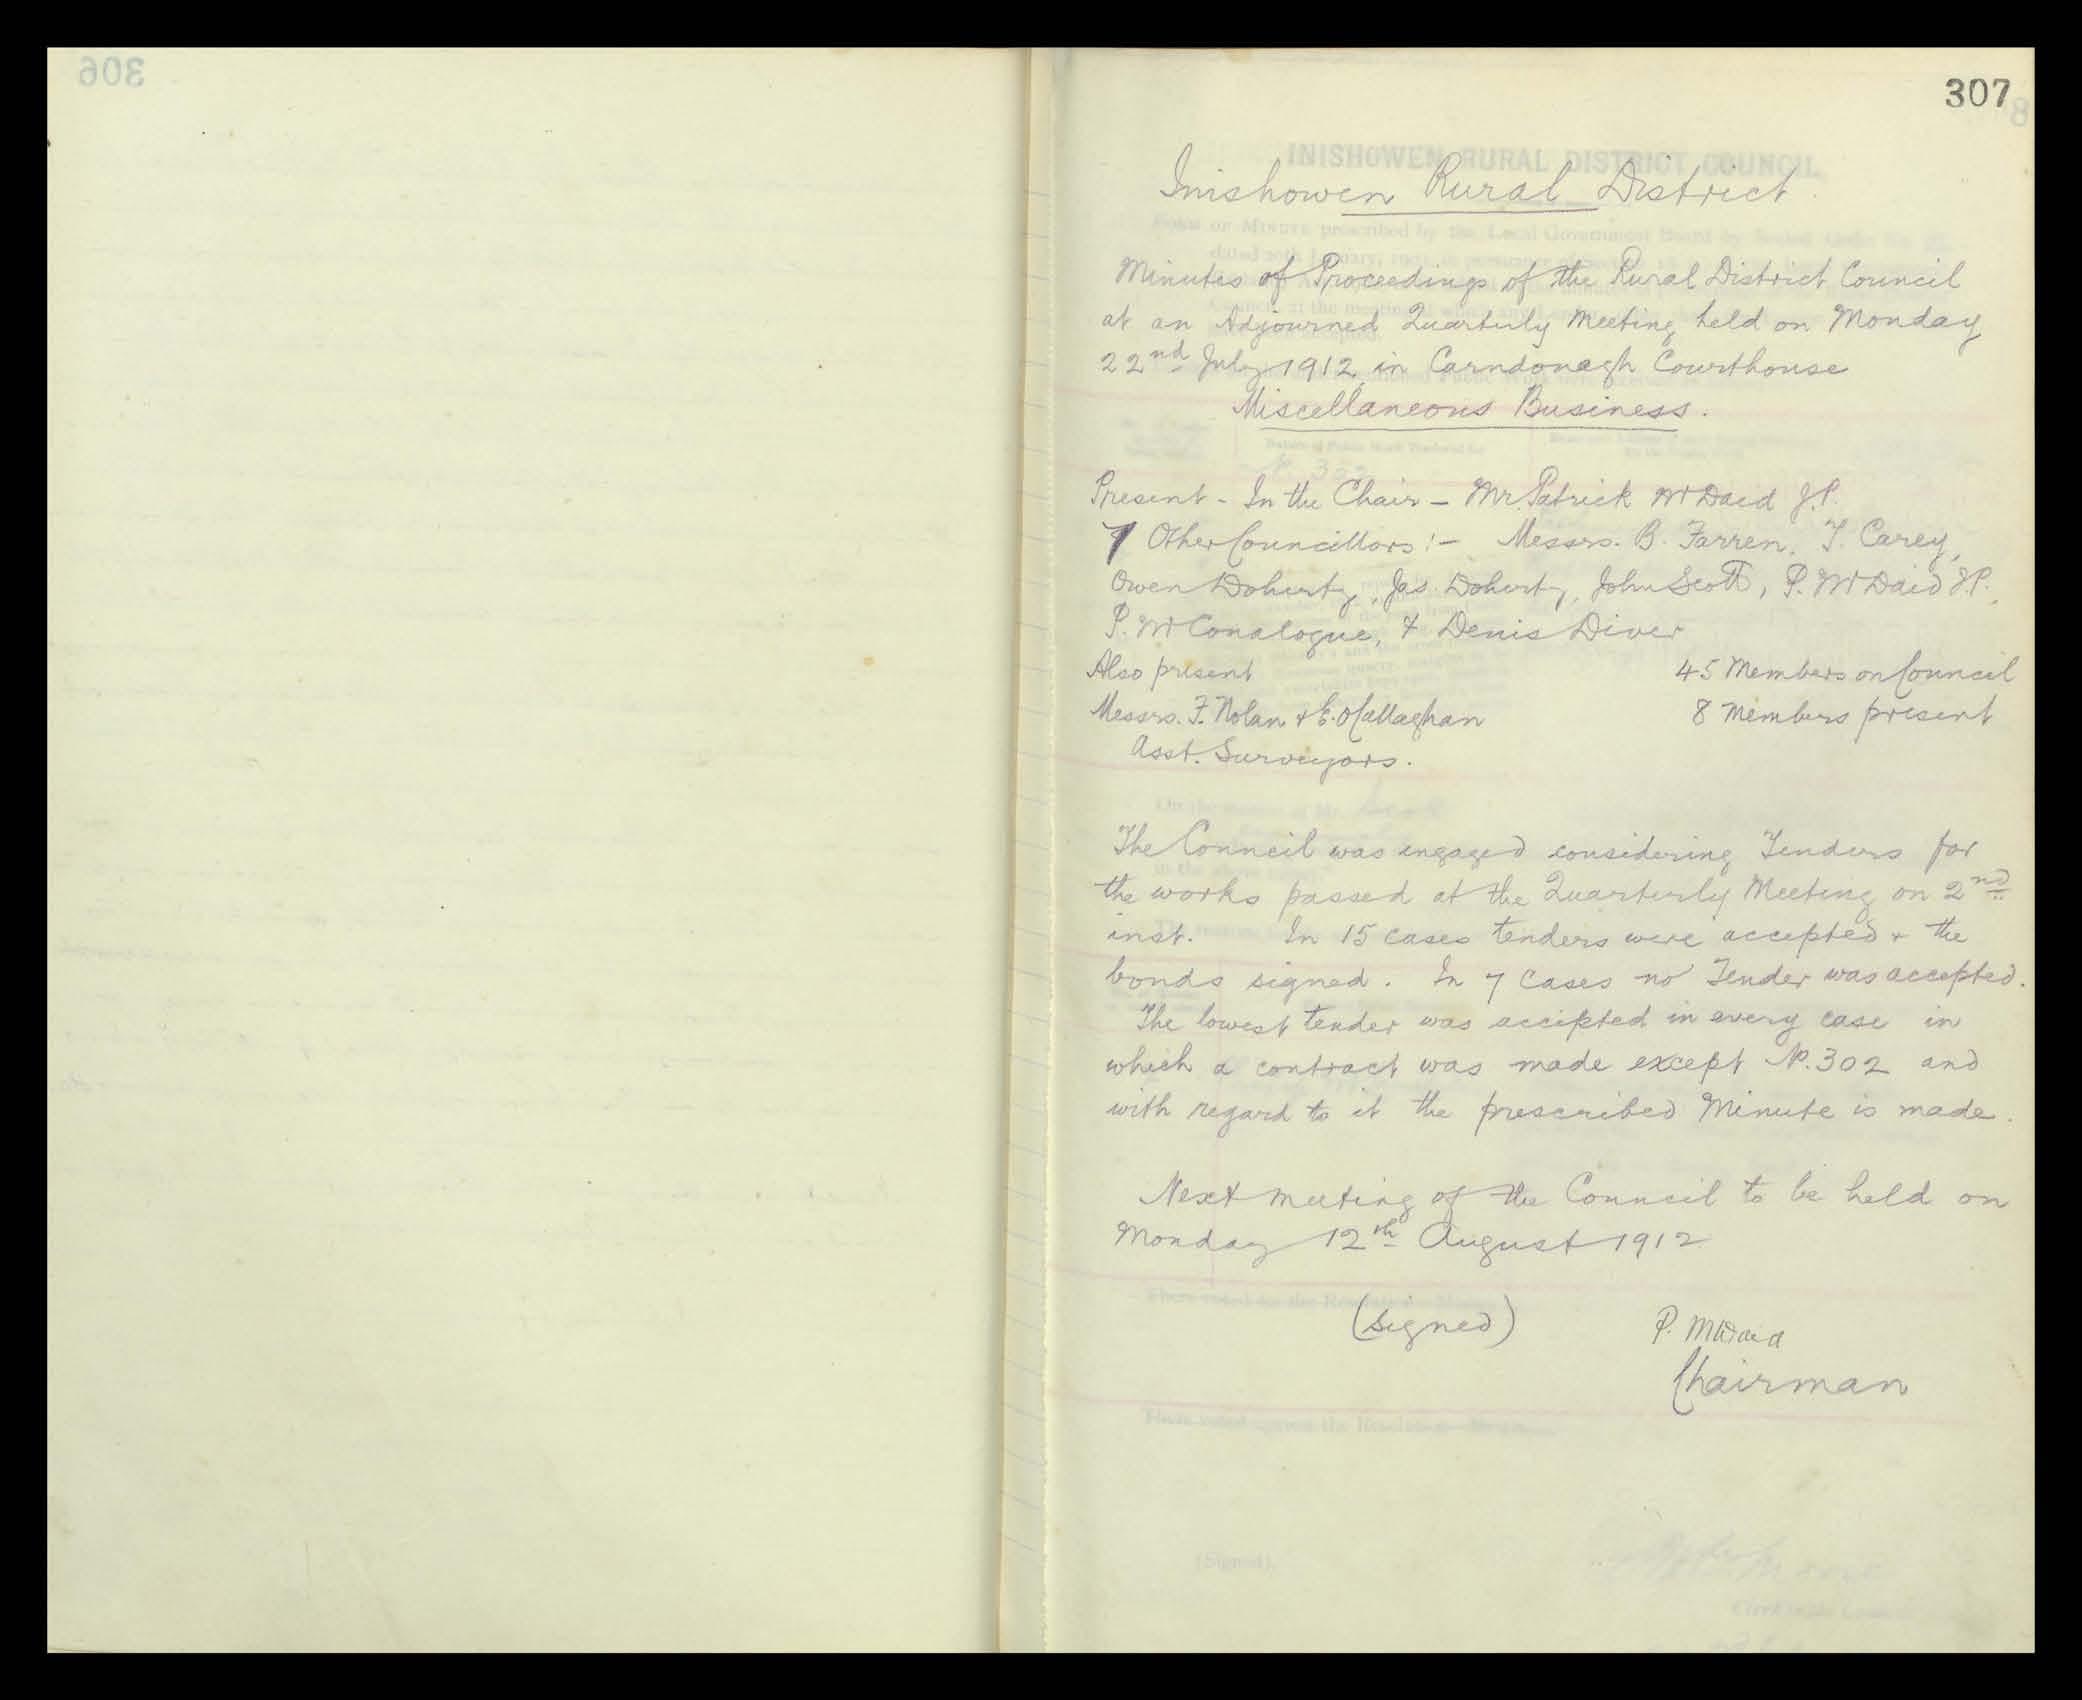 306
307
Inishowen Rural District
Minutes of Proceedings of the Rural District Council
at an Adjourned Quarterly Meeting held on Monday
22nd July 1912 in Carndonagh Courthouse
Miscellaneous Business.
Present - In the Chair - Mr. Patrick McDaid J.P.
7 Other Councillors :- Messrs. B. Farren, T. Carey,
Owen Doherty, Jas. Doherty, John Scott, P. McDaid J.P.,
P. McConalogue, & Denis Diver
Also present 45 Members on Council
Messrs. F. Nolan & E. O'Callaghan 8 Members present
Asst. Surveyors.
The Council was engaged considering Tenders for
the works passed at the Quarterly Meeting on 2nd
inst. In 15 cases tenders were accepted & the
bonds signed. In 7 cases no Tender was accepted.
The lowest tender was accepted in every case in
which a contract was made except No. 302 and
with regard to it the prescribed Minute is made.
Next meeting of the Council to be held on
Monday 12th August 1912
(signed) P. McDaid
Chairman